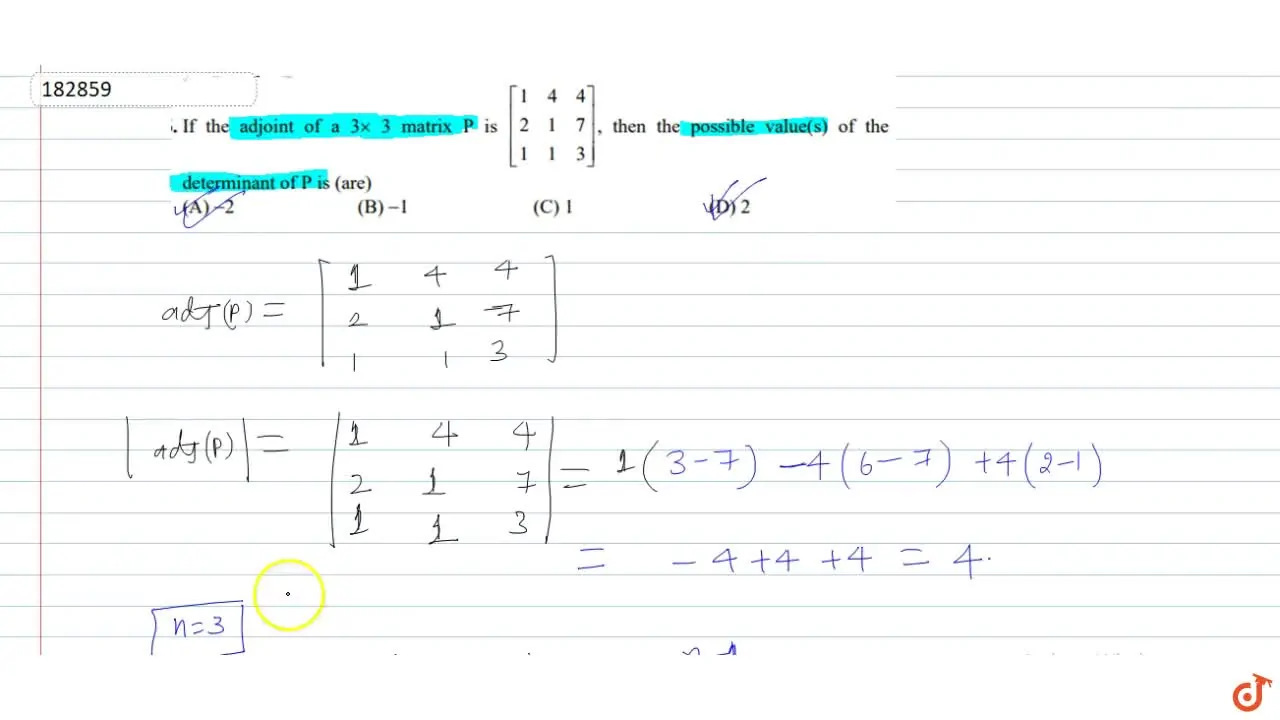 182859
. If the adjoint of a 3× 3 matrix P is [1 4 4
2 1 7
1 1 3], then the possible value(s) of the
determinant of P is (are)
(A) −2 (B) −1 (C) 1 (D) 2
adj(P) = [1 4 4
2 1 7
1 1 3]
|adj(P)| = |1 4 4
2 1 7
1 1 3| = 1(3-7) -4(6-7) +4(2-1)
= -4+4+4 = 4.
n=3